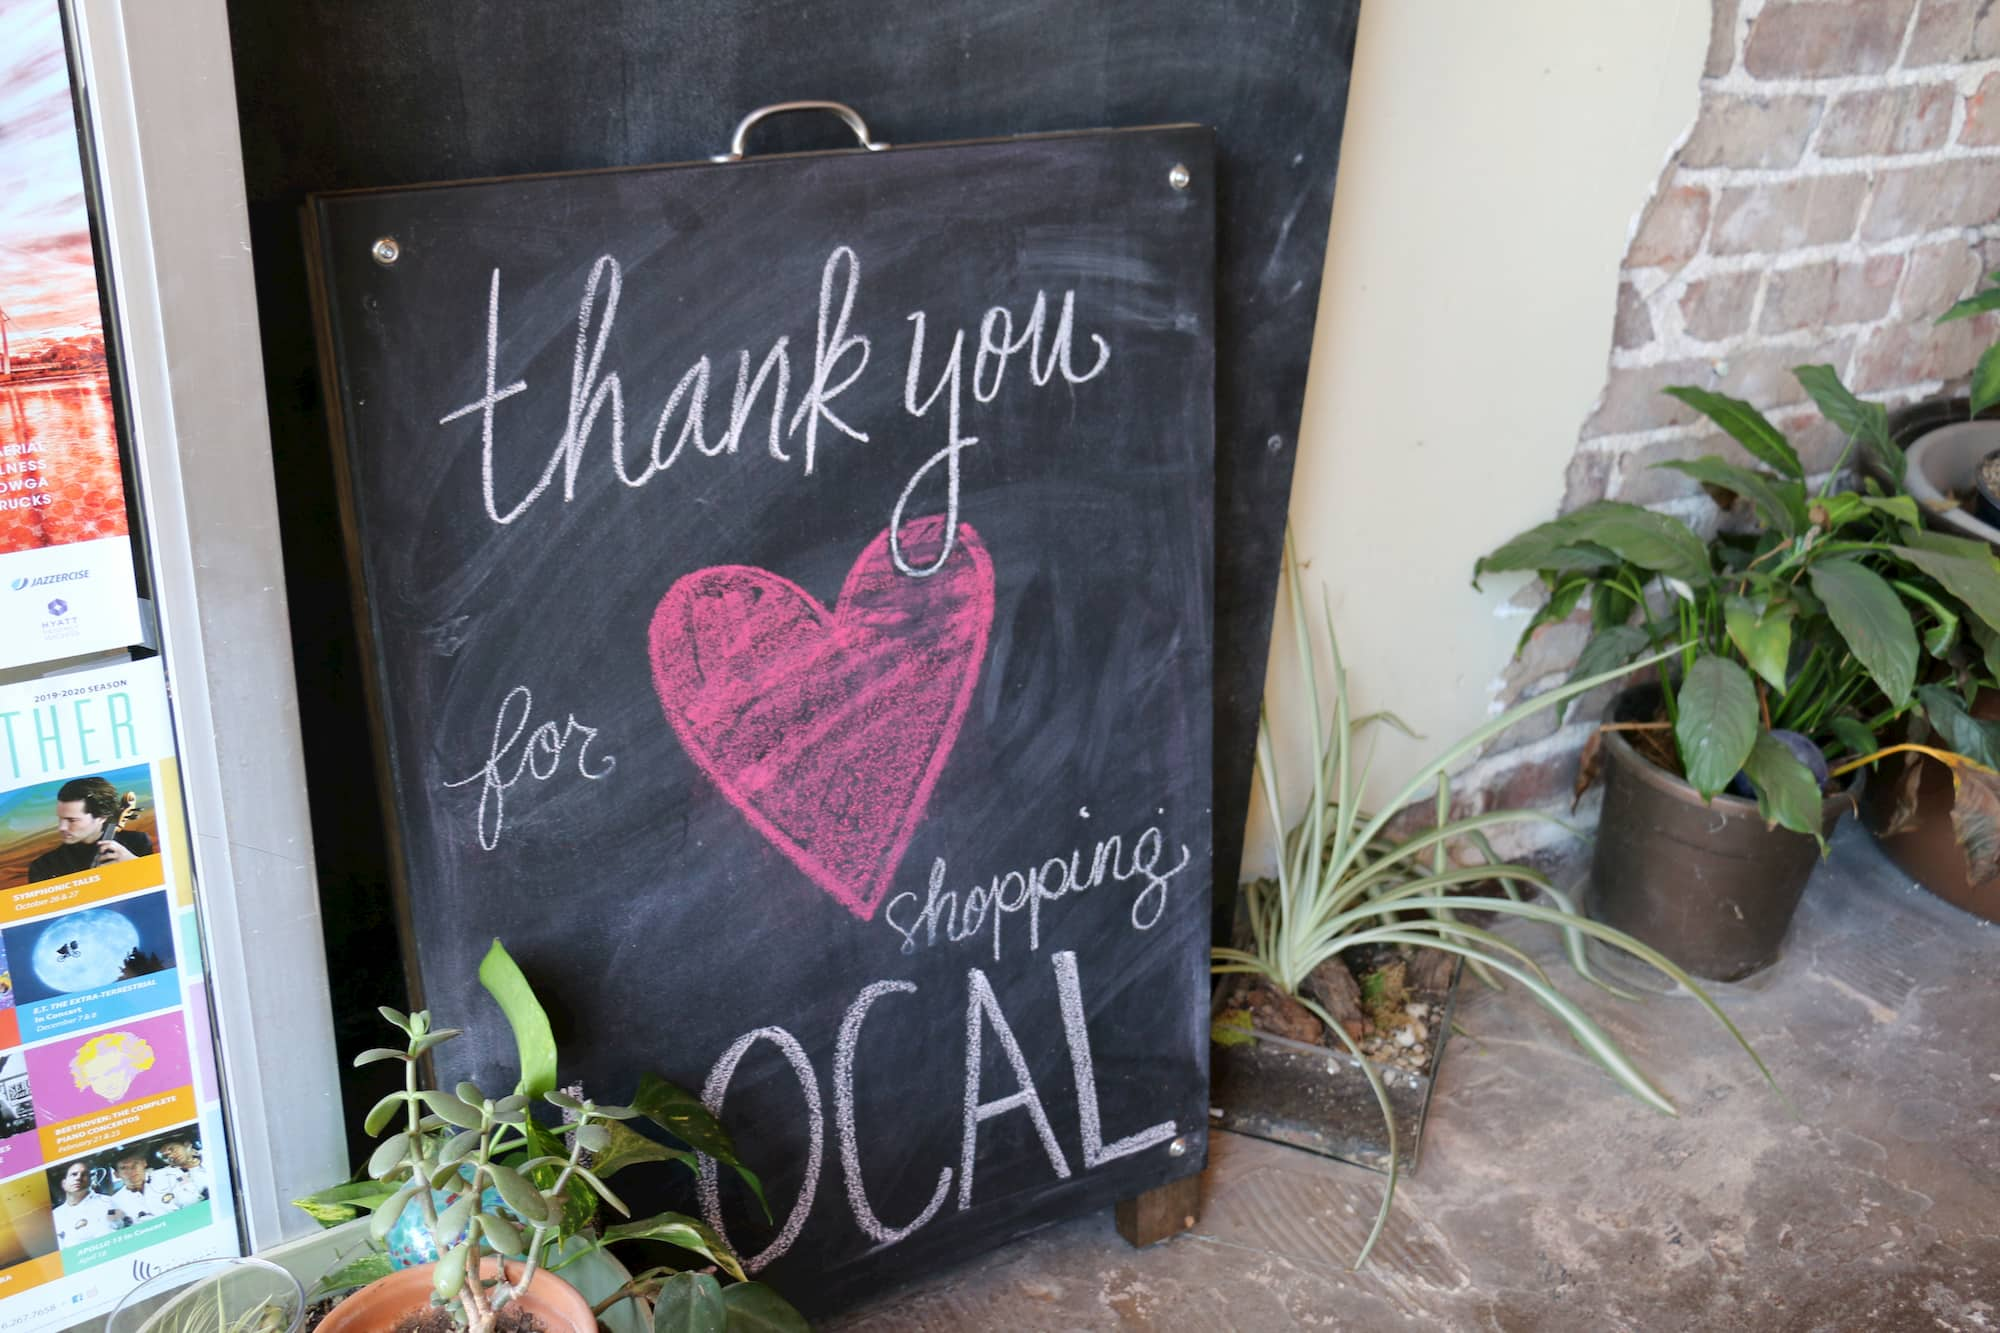 thank you
for
shopping
LOCAL
AERIAL
RUCKS
JAZZERCISE
HYATT
2019-2020 SEASON
THER
SYMPHONIC TALES
October 26 & 27
E.T. THE EXTRA-TERRESTRIAL
In Concert
December 7 & 8
BEETHOVEN: THE COMPLETE
PIANO CONCERTOS
February 21 & 23
APOLLO 13 In Concert
April 18
6.267.7658